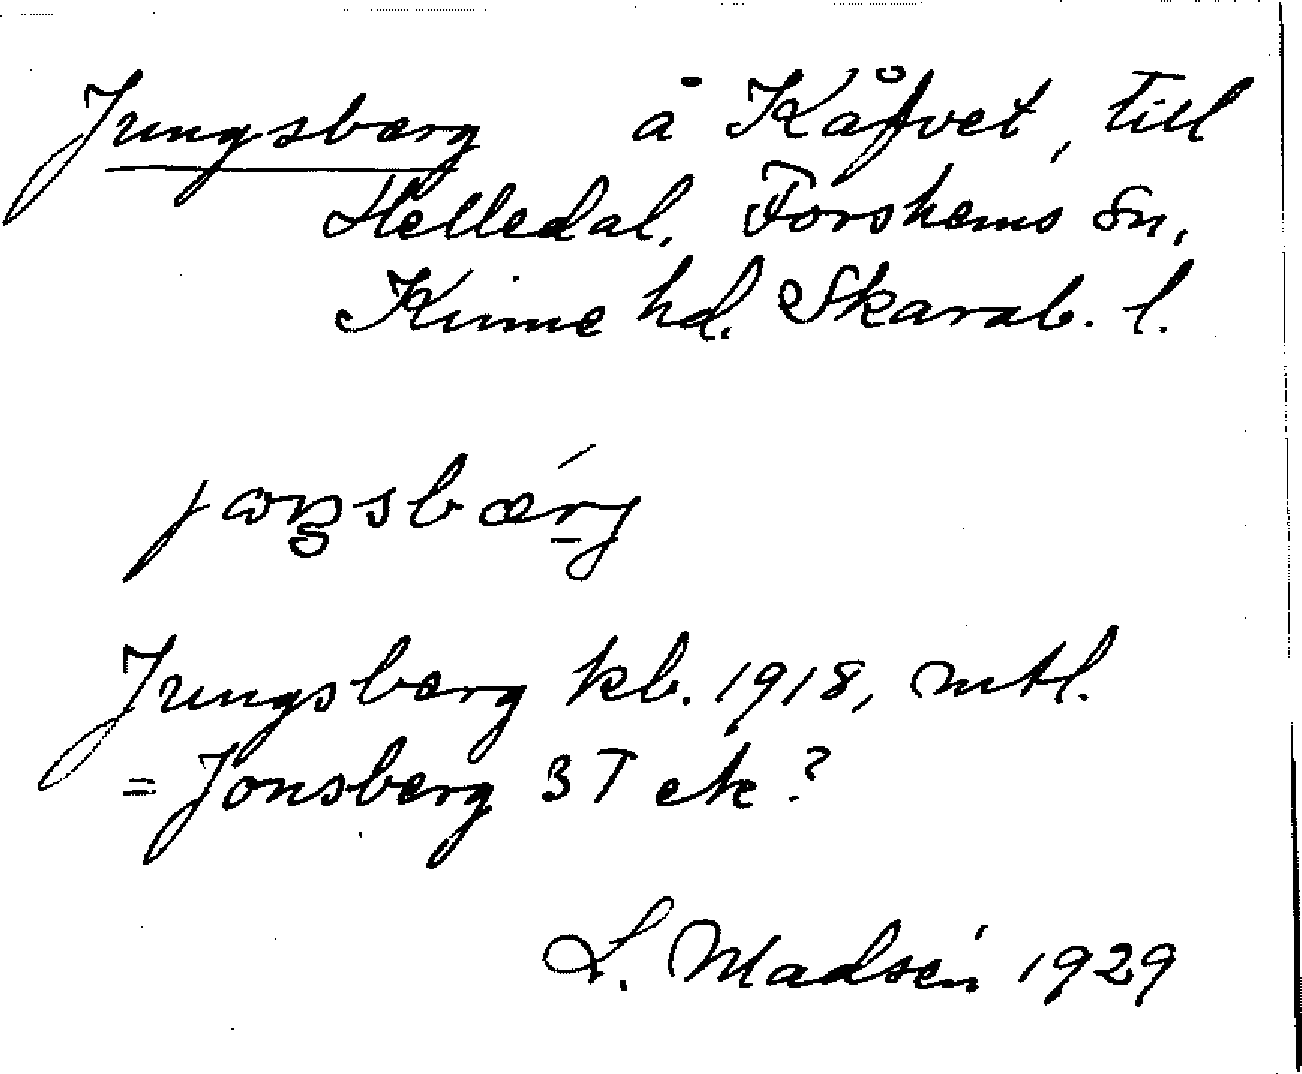 Jungsberg å Kåfvet, till
Helledal, Forshems Sn,
Kinne hd. Skarab. l.
Jungsberg kb. 1918, mtl.
= Jonsberg 3 T ek?
L. Madsén 1929